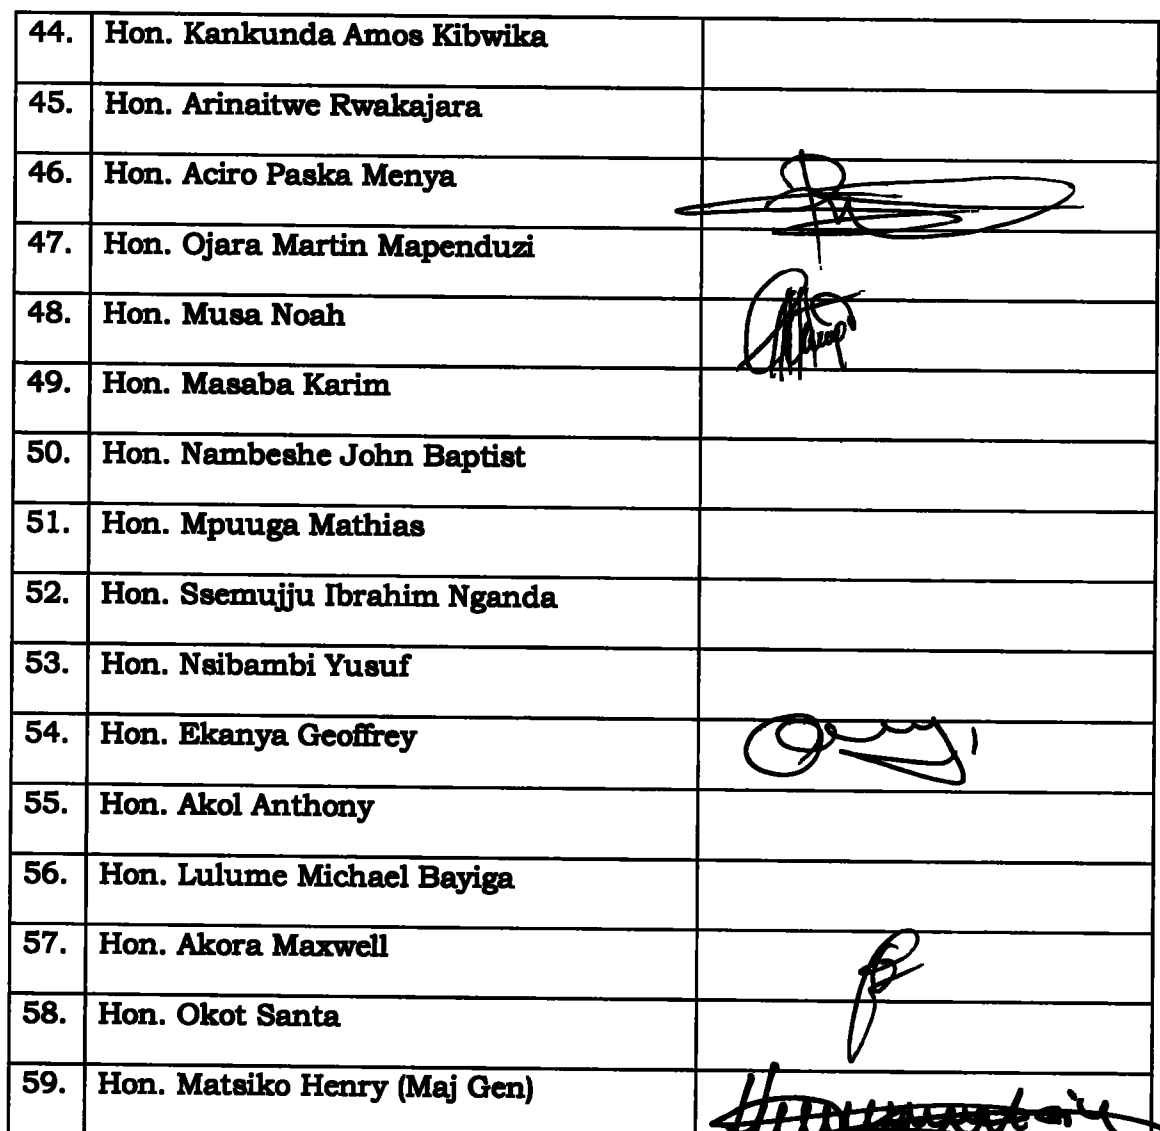 44. Hon. Kankunda Amos Kibwika
45. Hon. Arinaitwe Rwakajara
46. Hon. Aciro Paska Menya
47. Hon. Ojara Martin Mapenduzi
48. Hon. Musa Noah
49. Hon. Masaba Karim
50. Hon. Nambeshe John Baptist
51. Hon. Mpuuga Mathias
52. Hon. Ssemujju Ibrahim Nganda
53. Hon. Nsibambi Yusuf
54. Hon. Ekanya Geoffrey
55. Hon. Akol Anthony
56. Hon. Lulume Michael Bayiga
57. Hon. Akora Maxwell
58. Hon. Okot Santa
59. Hon. Matsiko Henry (Maj Gen)